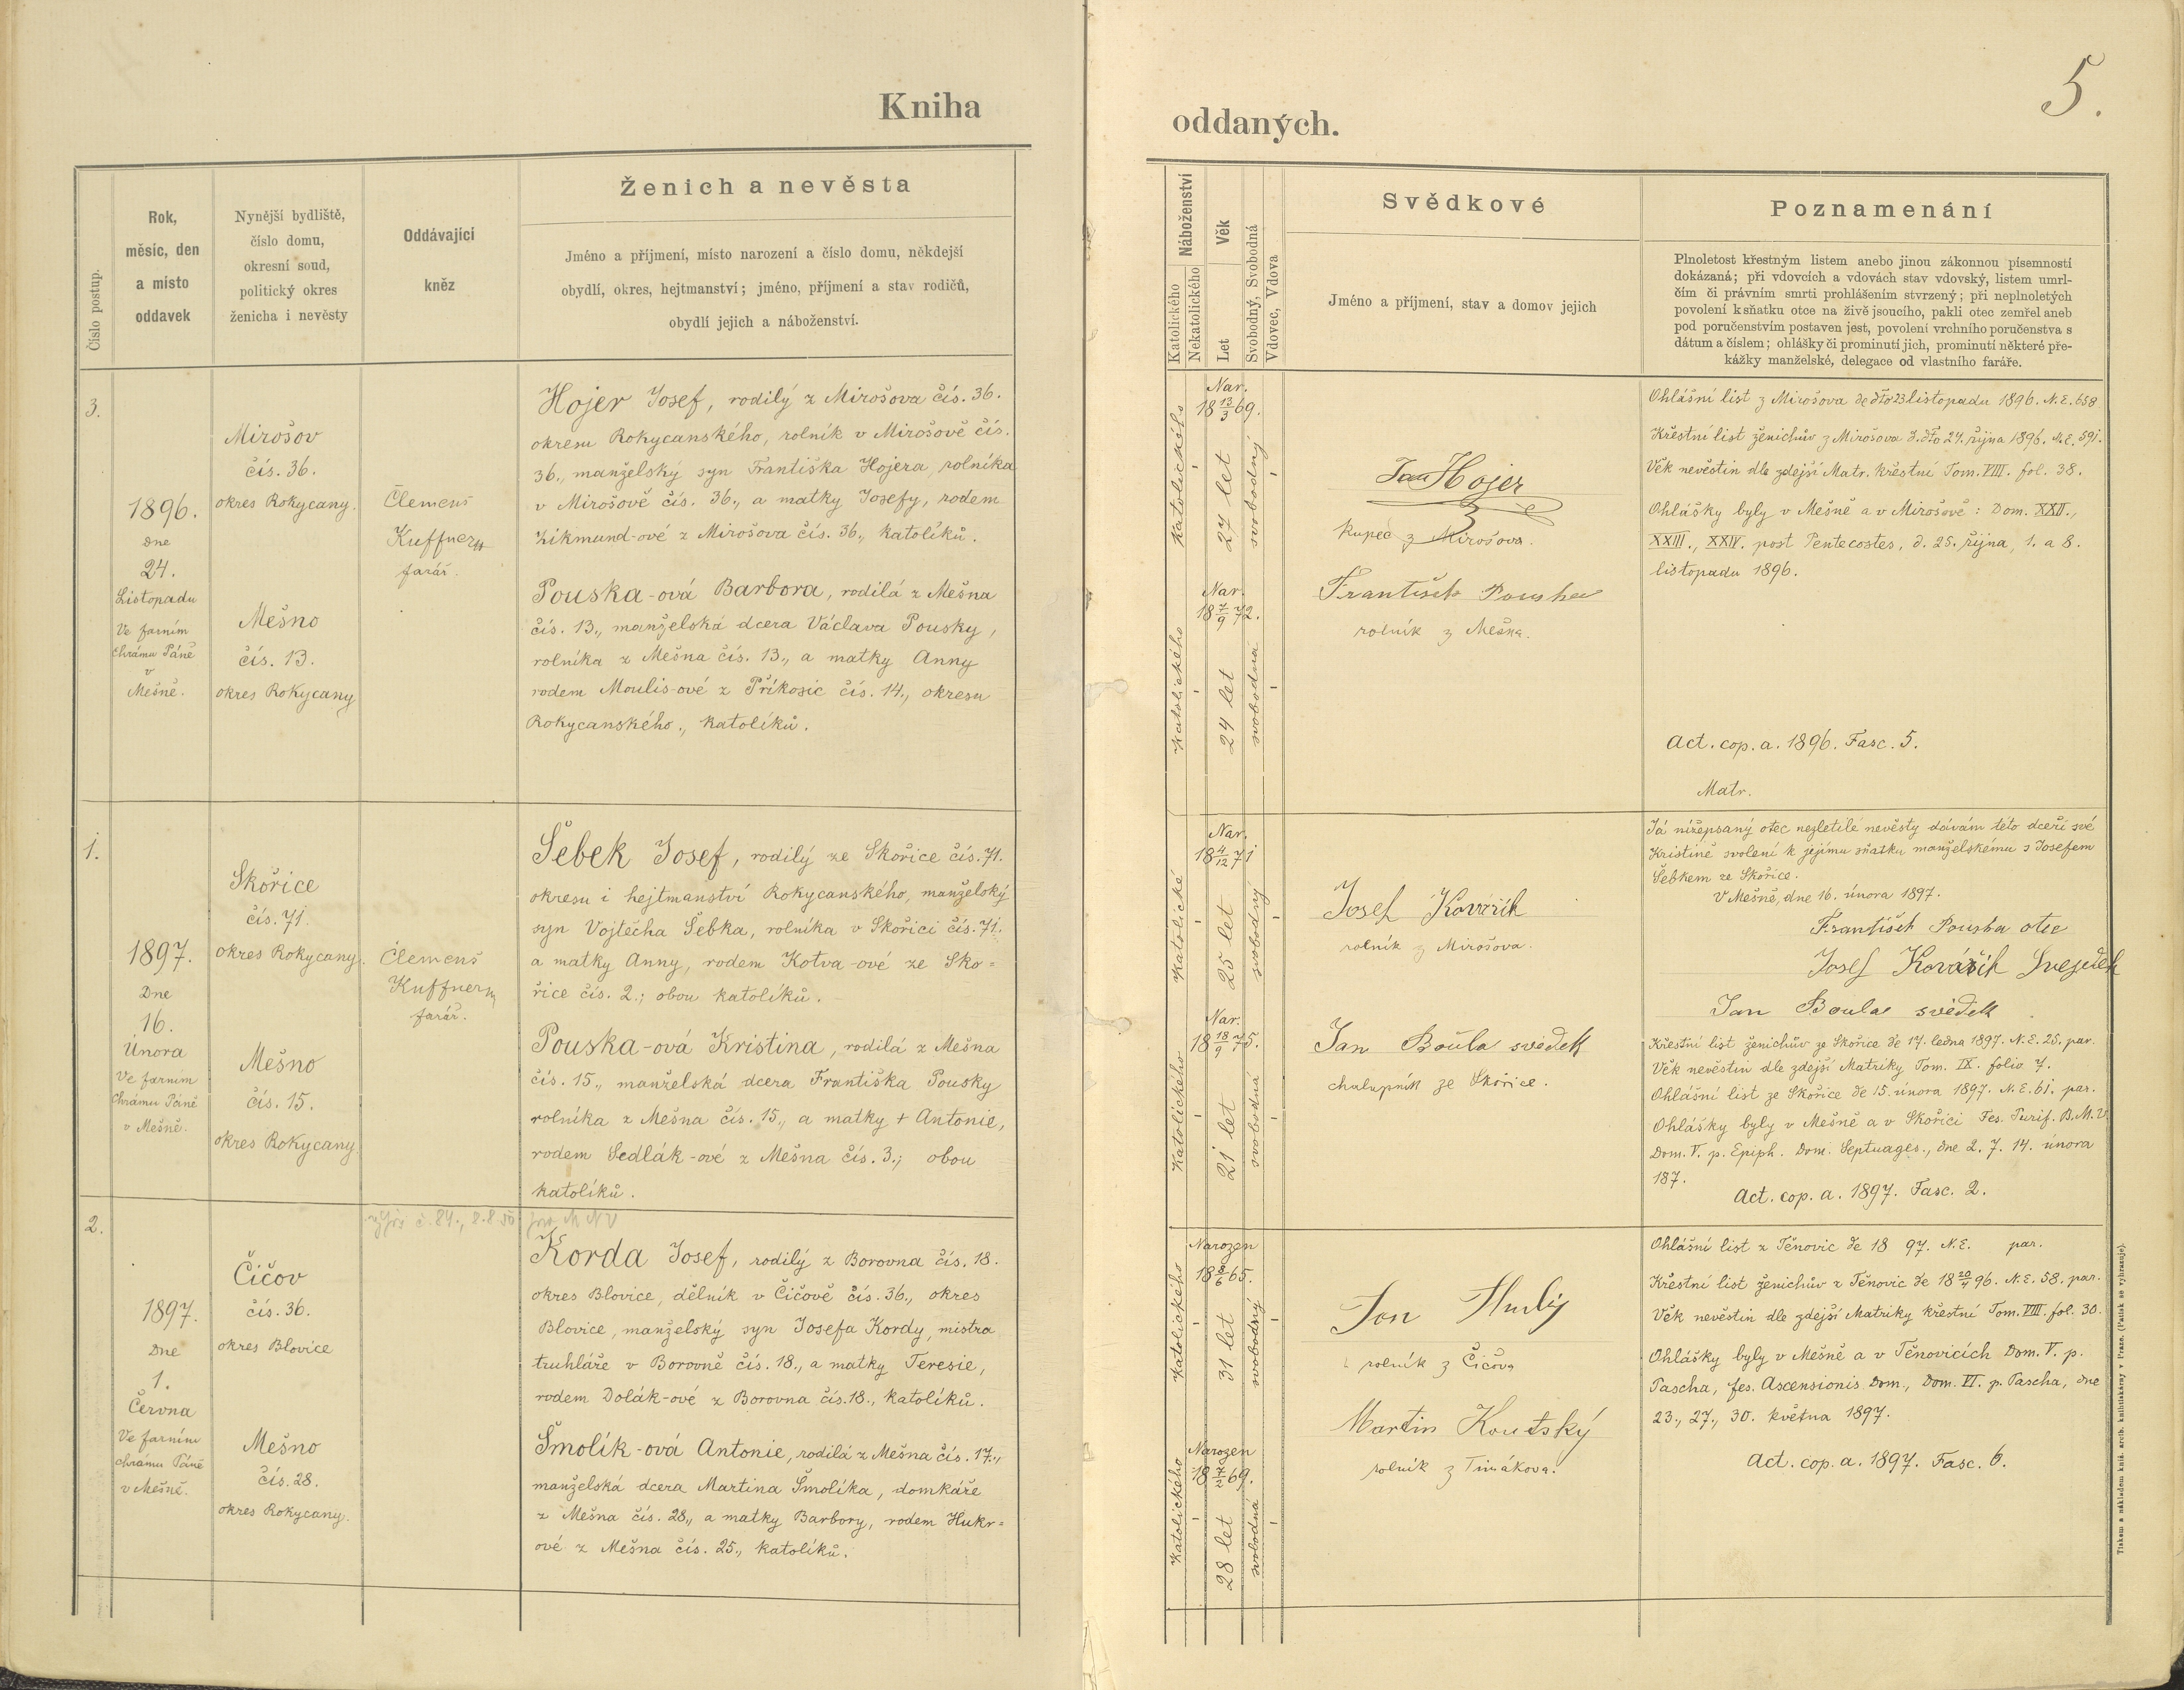 Kniha
oddaných.
5.
Číslo postup.
Rok,
měsíc, den
a místo
oddavek
Nynější bydliště,
číslo domu,
okresní soud,
politický okres
ženicha i nevěsty
Oddávající
kněz
Ženich a nevěsta
Jméno a příjmení, místo narození a číslo domu, někdejší
obydlí, okres, hejtmanství; jméno, příjmení a stav rodičů,
obydlí jejich a náboženství.
Náboženství
Katolického
Nekatolického
Věk
Let
Svobodný, Svobodná
Vdovec, Vdova
Svědkové
Jméno a příjmení, stav a domov jejich
Poznamenání
Plnoletost křestným listem anebo jinou zákonnou písemností
dokázaná; při vdovcích a vdovách stav vdovský, listem umrl-
čím či právním smrti prohlášením stvrzený; při neplnoletých
povolení k sňatku otce na živě jsoucího, pakli otec zemřel aneb
pod poručenstvím postaven jest, povolení vrchního poručenstva s
dátum a číslem; ohlášky či prominutí jich, prominutí některé pře-
kážky manželské, delegace od vlastního faráře.
3.
1896.
Dne
24.
Listopadu
Ve farním
chrámu Páně
v
Mešně.
Mirošov
čís. 36.
okres Rokycany.
Mešno
čís. 13.
okres Rokycany
Clemens
Kuffner
farář.
Hojer Josef, rodilý z Mirošova čís. 36.
okresu Rokycanského, rolník v Mirošově čís.
36., manželský syn Františka Hojera, rolníka
v Mirošově čís. 36., a matky Josefy, rodem
Zikmund-ové z Mirošova čís. 36., katolíků.
Pouska-ová Barbora, rodilá z Mešna
čís. 13., manželská dcera Václava Pousky,
rolníka z Mešna čís. 13., a matky Anny
rodem Moulis-ové z Příkosic čís. 14., okresu
Rokycanského., katolíků.
Katolického
Nar.
18 13/3 69.
27 let
svobodný
Katolického
Nar.
18 7/9 72.
24 let
svobodná
Jan Hojer
kupec z Mirošova.
František Pouska
rolník z Mešna.
Ohlášní list z Mirošova de dto 23 listopadu 1896. N.E. 658
Křestní list ženichův z Mirošova d. dto 24. října 1896. N.E. 591.
Věk nevěstin dle zdejší Matr. křestní Tom. VIII. fol. 38.
Ohlášky byly v Mešně a v Mirošově: Dom. XXII.,
XXIII., XXIV. post Pentecostes, d. 25. října, 1. a 8.
listopadu 1896.
Act. cop. a. 1896. Fasc. 5.
Matr.
1.
1897.
Dne
16.
Února
Ve farním
chrámu Páně
v Mešně.
Skořice
čís. 71.
okres Rokycany.
Mešno
čís. 15.
okres Rokycany.
Clemens
Kuffner
farář.
Šebek Josef, rodilý ze Skořice čís. 71.
okresu i hejtmanství Rokycanského, manželský
syn Vojtěcha Šebka, rolníka v Skořici čís. 71.
a matky Anny, rodem Kotva-ové ze Sko=
řice čís. 2.; obou katolíků.
Pouska-ová Kristina, rodilá z Mešna
čís. 15., manželská dcera Františka Pousky
rolníka z Mešna čís. 15., a matky + Antonie,
rodem Sedlák-ové z Mešna čís. 3.; obou
katolíků.
Katolické
Nar.
18 4/12 71
25 let
svobodný
Katolického
Nar.
18 18/9 75.
21 let
svobodná
Josef Kovařík
rolník z Mirošova.
Jan Boula svědek
chalupník ze Skořice.
Já nížepsaný otec nezletilé nevěsty dávám této dceři své
Kristině svolení k jejímu sňatku manželskému s Josefem
Šebkem ze Skořice.
V Mešně, dne 16. února 1897.
František Pouska otec
Josef Kovářík Svejdek
Jan Boula svědek
Křestní list ženichův ze Skořice de 17. ledna 1897. N.E. 25. par.
Věk nevěstin dle zdejší Matriky Tom. IX. folio 7.
Ohlášní list ze Skořice de 15. února 1897. N.E. 61. par.
Ohlášky byly v Mešně a v Skořici Fes. Purif. B.M.V.
Dom. V. p. Epiph. Dom. Septuages., dne 2. 7. 14. února
187.
Act. cop. a. 1897. Fasc. 2.
2.
1897.
Dne
1.
Června
Ve farním
chrámu Páně
v Mešně.
Čičov
čís. 36.
okres Blovice
Mešno
čís. 28.
okres Rokycany.
č. 84., 8.8.50 pro MNV
Korda Josef, rodilý z Borovna čís. 18.
okres Blovice, dělník v Čičově čís. 36., okres
Blovice, manželský syn Josefa Kordy, mistra
truhláře v Borovně čís. 18., a matky Teresie,
rodem Dolák-ové z Borovna čís. 18., katolíků.
Šmolík-ová Antonie, rodilá z Mešna čís. 17.,
manželská dcera Martina Šmolíka, domkáře
z Mešna čís. 28., a matky Barbory, rodem Hukr=
ové z Mešna čís. 25., katolíků.
Katolického
Narozen
18 8/6 65.
31 let
svobodný
Katolického
Narozen
18 7/2 69.
28 let
svobodná
Jan Hudý
rolník z Čičova
Martin Koutský
rolník z Timákova.
Ohlášní list z Těnovic de 18 97. N.E. par.
Křestní list ženichův z Těnovic de 18 20/4 96. N.E. 58. par.
Věk nevěstin dle zdejší Matriky křestní Tom. VIII. fol. 30.
Ohlášky byly v Mešně a v Těnovicích Dom. V. p.
Pascha, fes. Ascensionis Dom., Dom. VI. p. Pascha, dne
23., 27., 30. května 1897.
Act. cop. a. 1897. Fasc. 6.
Tiskem a nákladem kníž. arcib. knihtiskárny v Praze. (Patisk se vyhrazuje).